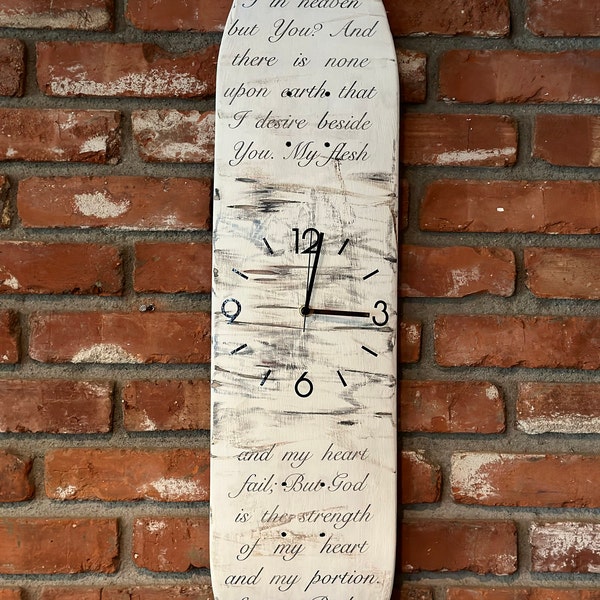 I in heaven
but You? And
there is none
upon earth that
I desire beside
You. My flesh
12
9 3
6
and my heart
fail; But God
is the strength
of my heart
and my portion.